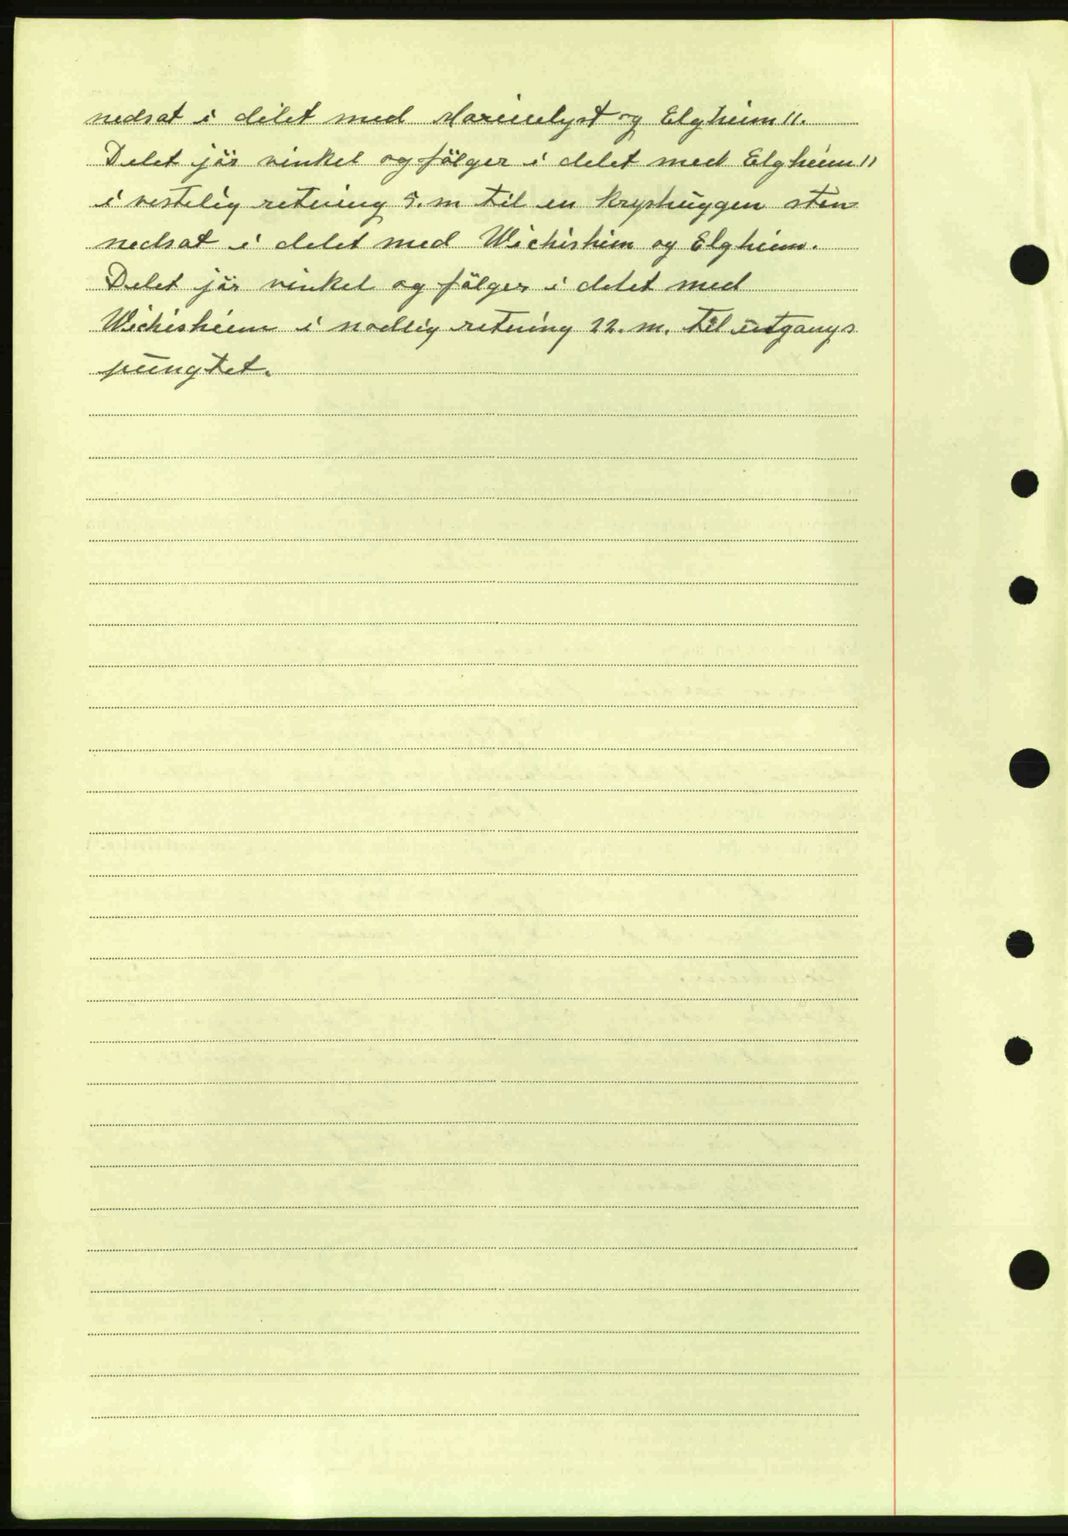 nedsat i delet med Marienlyst og Elgheim 11.
Delet jör vinkel og fölger i delet med Elgheim 11
i vestelig retning 5. m til en kryshuggen sten
nedsat i delet med Wichisheim og Elgheim.
Delet jör vinkel og fölger i delet med
Wichisheim i nodlig retning 22. m. til utgangs
pungtet.